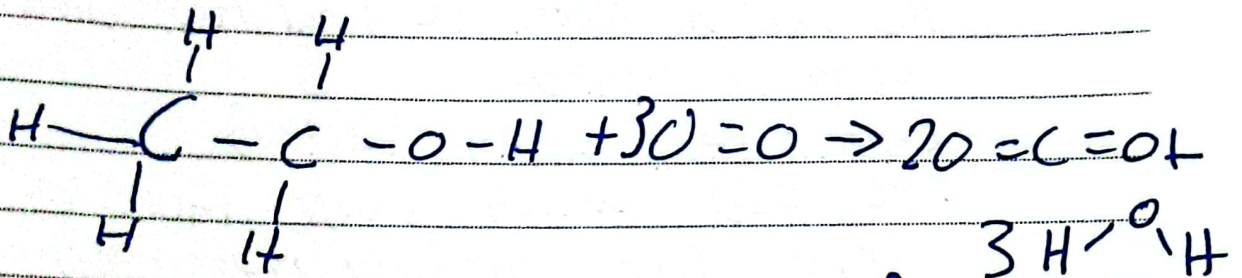 H H
H-C-C-O-H +3O=O→2O=C=O+
H H
3 H O H